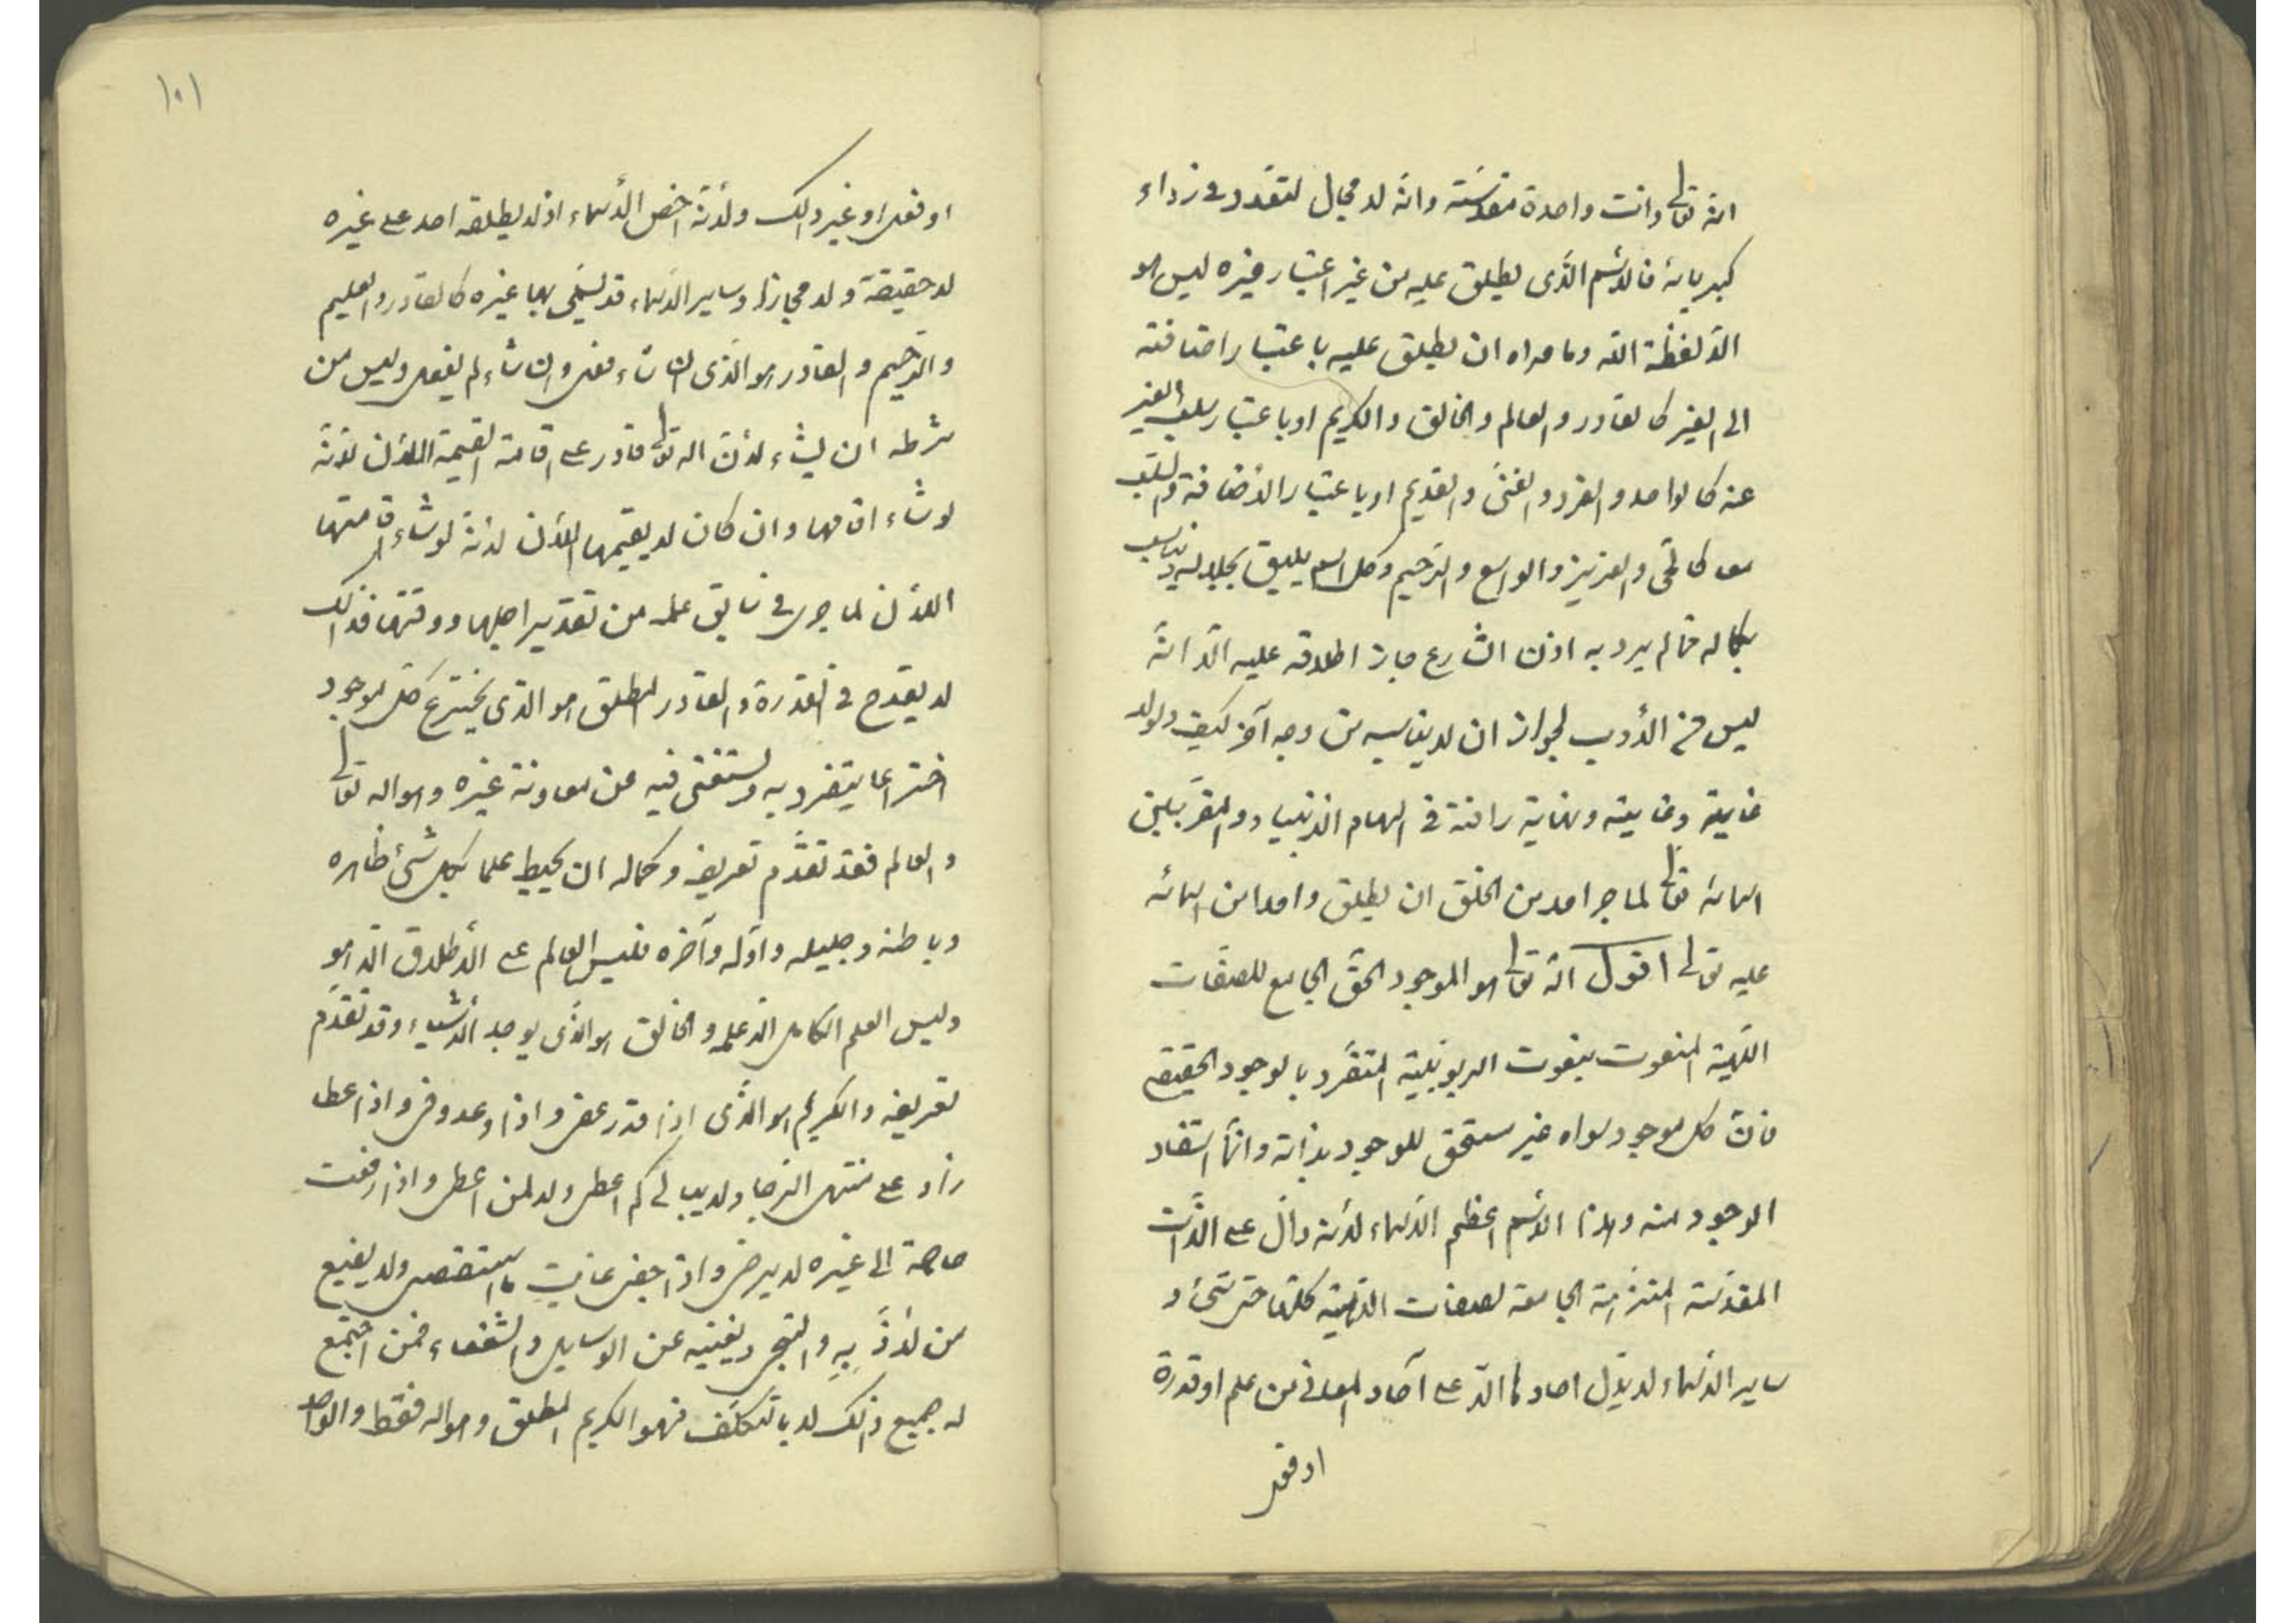 انه تعالى ذات واحدة مقدسة وانه لا مجال للتعدد في رداء
كبريائه فالاسم الذى يطلق عليه من غير اعتبار غيره ليس هو
الا لفظة الله وما عداه ان يطلق عليه باعتبار اضافته
الى الغير كالقادر والعالم والخالق والكريم او باعتبار سلب الغير
عنه كالواحد والفرد والغنى والقديم او باعتبار الاضافة والسلب
معا كالحى والعزيز والواسع والرحيم وكل اسم يليق بجلاله ويناسب
بكماله مما لم يرد به اذن الشارع جاز اطلاقه عليه الا انه
ليس من الأدب لجواز ان لا يناسبه من وجه آخر كيف ولولا
عناية ونهاية رافته فى الهام الانبياء والمقربين
اسمائه تعالى لما جرا احد من الخلق ان يطلق واحدا من اسمائه
عليه تعالى اقول انه تعالى هو الموجود الحق الجامع للصفات
الالهية المنعوت بنعوت الربوبية المتفرد بالوجود الحقيقى
فان كل موجود سواه غير مستحق للوجود بذاته وانما استفاد
الوجود منه وهذا الاسم اعظم الاسماء لانه دال على الذات
المقدسة المنزهة الجامعة لصفات الالهية كلها حتى لا
ساير الاسماء لا يدل احادها الا على آحاد المعانى من علم او قدرة
او فعل
١٠١
او فعل او غير ذلك ولأنه اخص الأسماء اذ لا يطلقه احد على غيره
لا حقيقة ولا مجازا وساير الاسماء قد يسمى بها غيره كالقادر والعليم
والرحيم والقادر هو الذى ان شاء فعل وان شاء لم يفعل وليس من
شرطه ان يشاء لأن الله تعالى قادر على اقامة القيمة الان لأنه
لو شاء اقامها وان كان لا يقيمها الان لأنه لو شاء اقامتها
الان لما جرى فى سابق علمه من تقدير اجلها ووقتها فذلك
لا يقدح فى القدرة والقادر المطلق هو الذى يخترع كل موجود
اختراعا يتفرد به ويستغنى فيه عن معاونة غيره وهو الله تعالى
والعالم فقد تقدم تعريفه وكماله ان يحيط علما بكل شئ ظاهره
وباطنه وجليله واوله وآخره فليس العالم على الأطلاق الا هو
وليس العلم الكامل الا علمه والخالق هو الذى يوجد الأشياء وقد تقدم
تعريفه والكريم هو الذى اذا قدر عفى واذا وعد وفى واذا اعطا
زاد على منتهى الرجا ولا يبالى كم اعطى ولا لمن اعطى واذا رفعت
حاجة الى غيره لا يرضى واذا جفى عاتب وما استقصى ولا يضيع
من لاذ به والتجى ويغنيه عن الوسايل والشفعاء فمن اجتمع
له جميع ذلك لا بالتكلف فهو الكريم المطلق وهو الله فقط والواحد